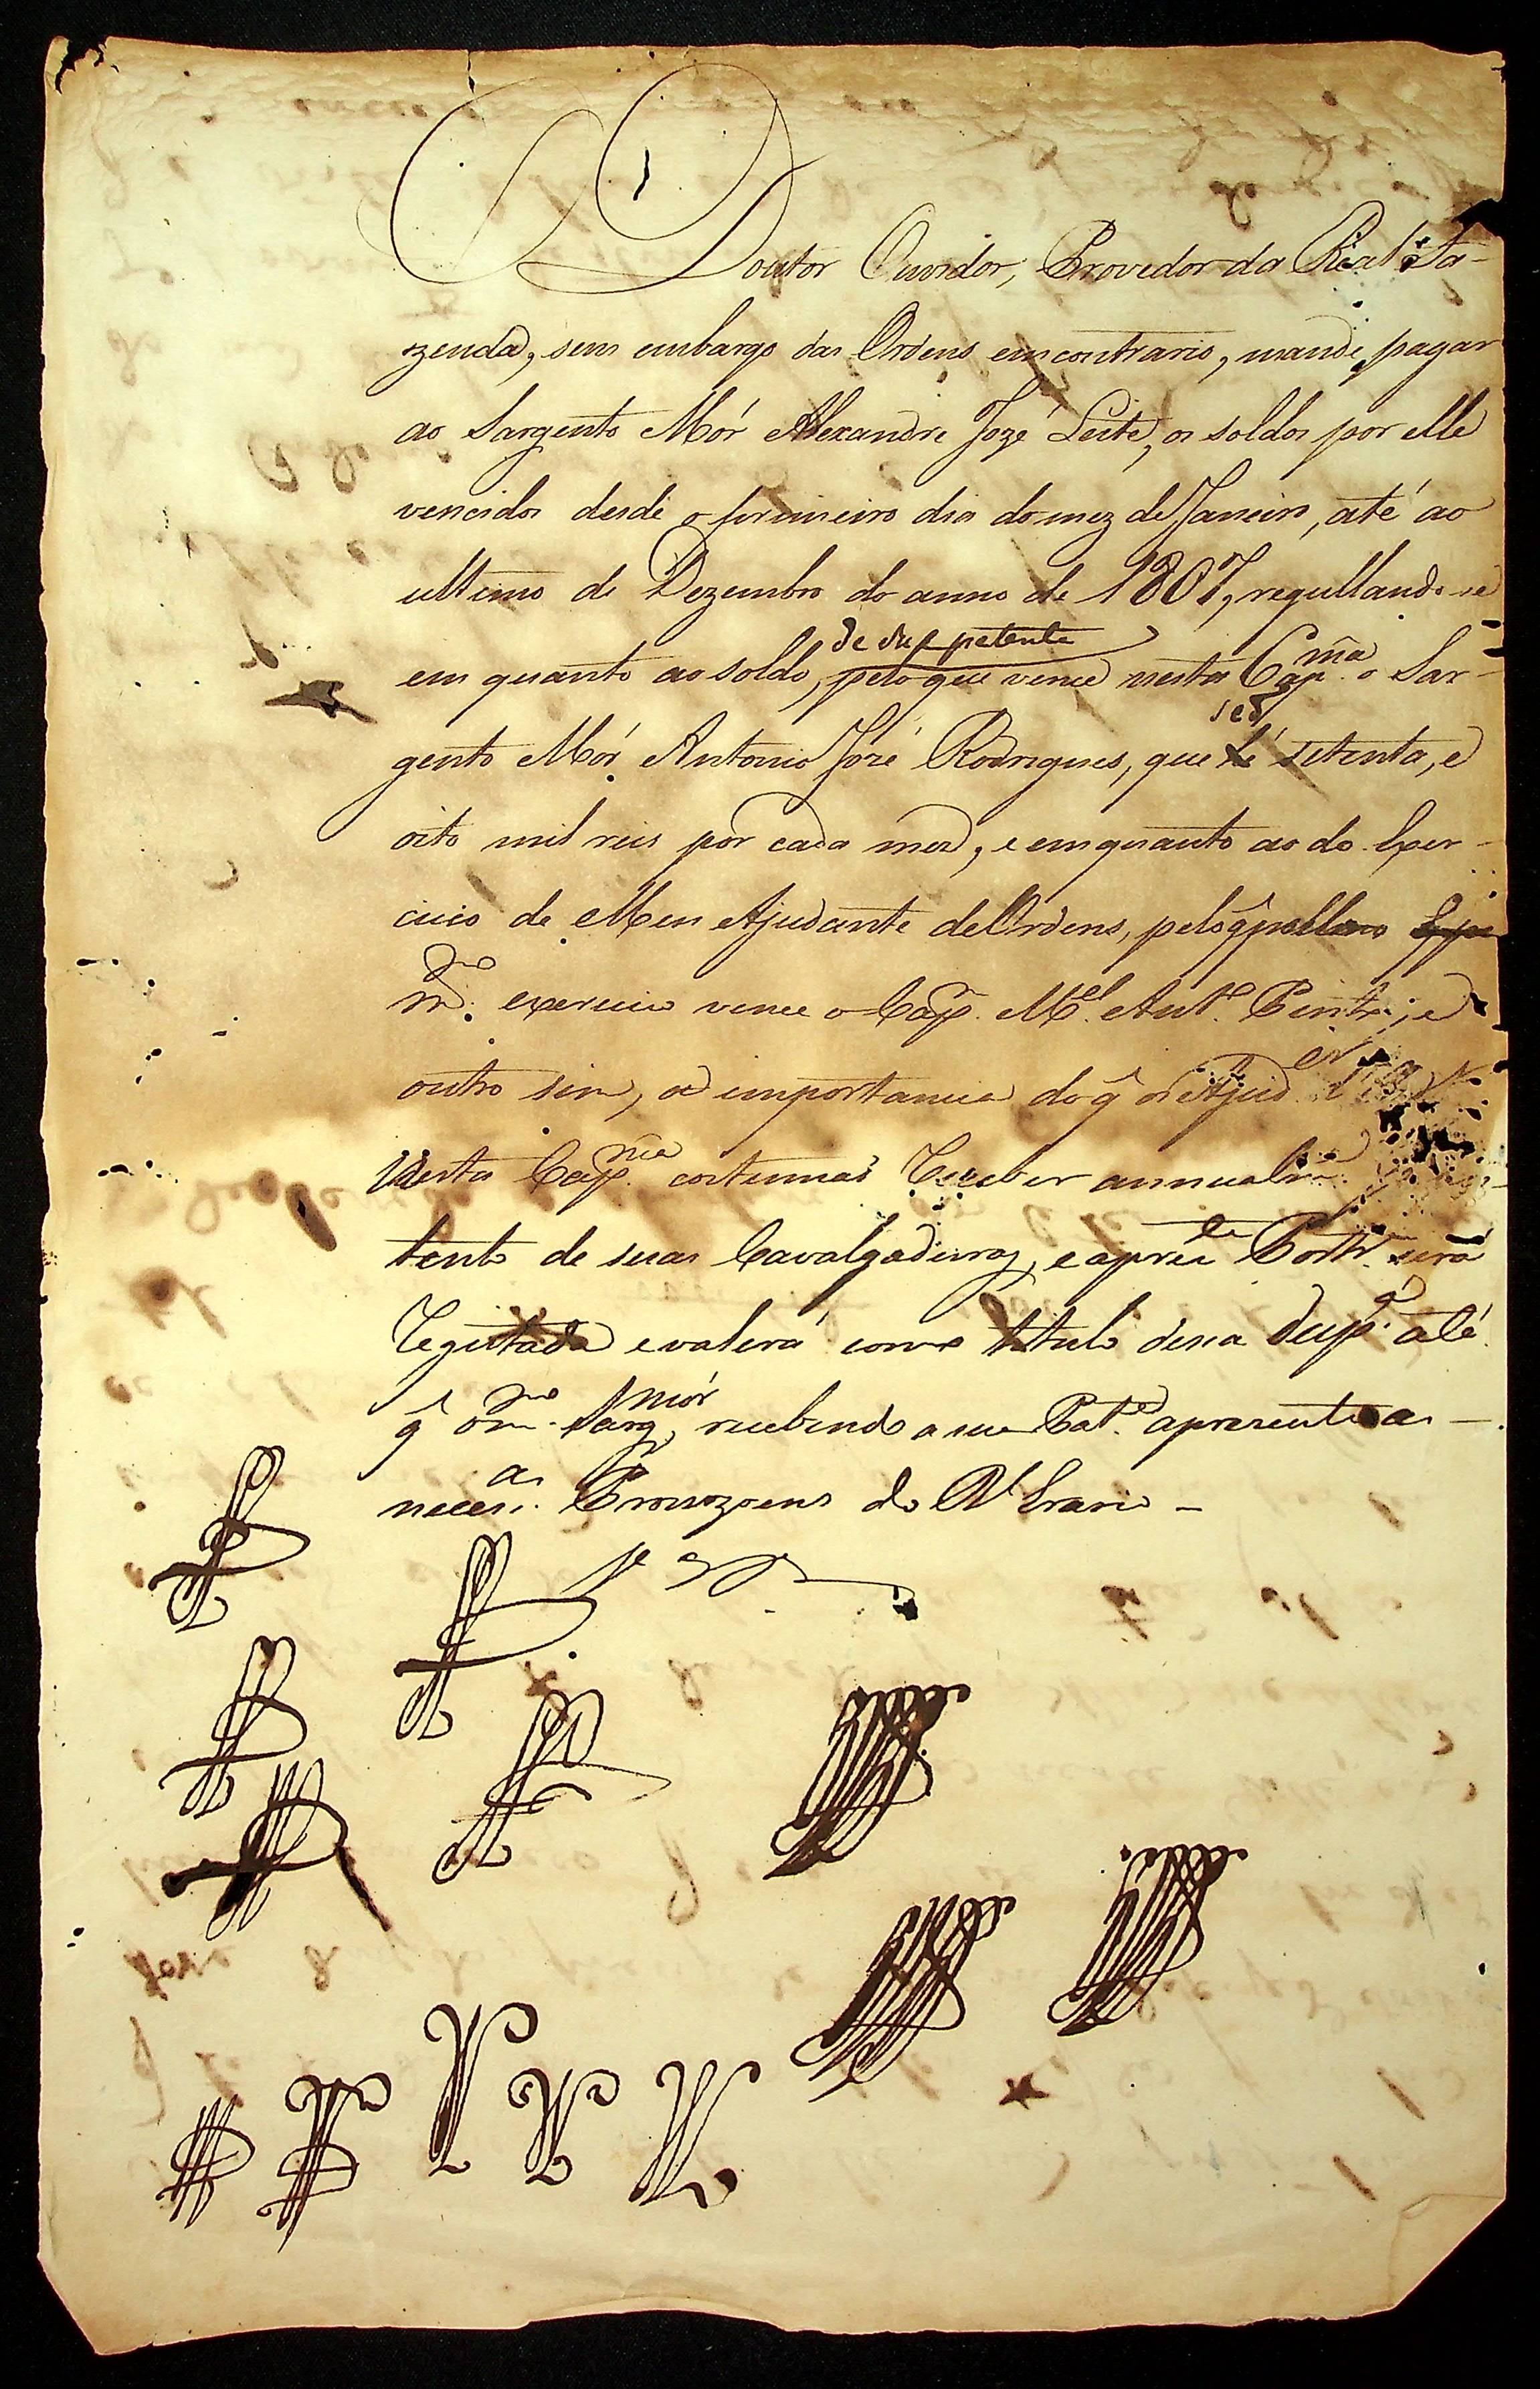 O Doutor Ouvidor, Provedor da Real Fa-
zenda, sem embargo das Ordens em contrario, mande pagar
ao Sargento Mór Alexandre Jozé Leite, os soldos por elle
vencidos desde o primeiro dia do mez de Janeiro, até ao
ultimo de Dezembro do anno de 1807, regullando-se
de sua patente
em quanto ao soldo, pelo que vence nesta Cap.nia o Sar-
gento Mór Antonio Jozé Rodrigues, que hé setenta, e
oito mil reis por cada mez, e em quanto ao do Exer-
cicio de Meu Ajudante de Ordens, pelo q̂
m.mo exercicio vence o Cap.m M.el Ant.o Pinto; e
outro sim, a importancia do q̂ os Ajud.es
desta Cap.nia costumaõ receber annualm.te
tento de suas Cavalgaduras, e a prez.te Port.a será
registada e valerá como titulo desta desp.a até
q̂ o m.mo Sarg.to mór recebendo a sua Pat.e aprezente as
necess.as Provizoens do R.l Erario